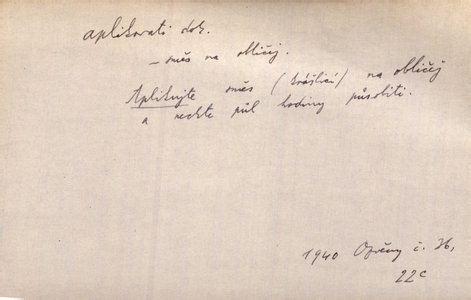 aplikovati dok.
– směs na obličej.
Aplikujte směs (krášlicí) na obličej
a nechte půl hodiny působiti.
1940 Opřeny č. 36,
22c